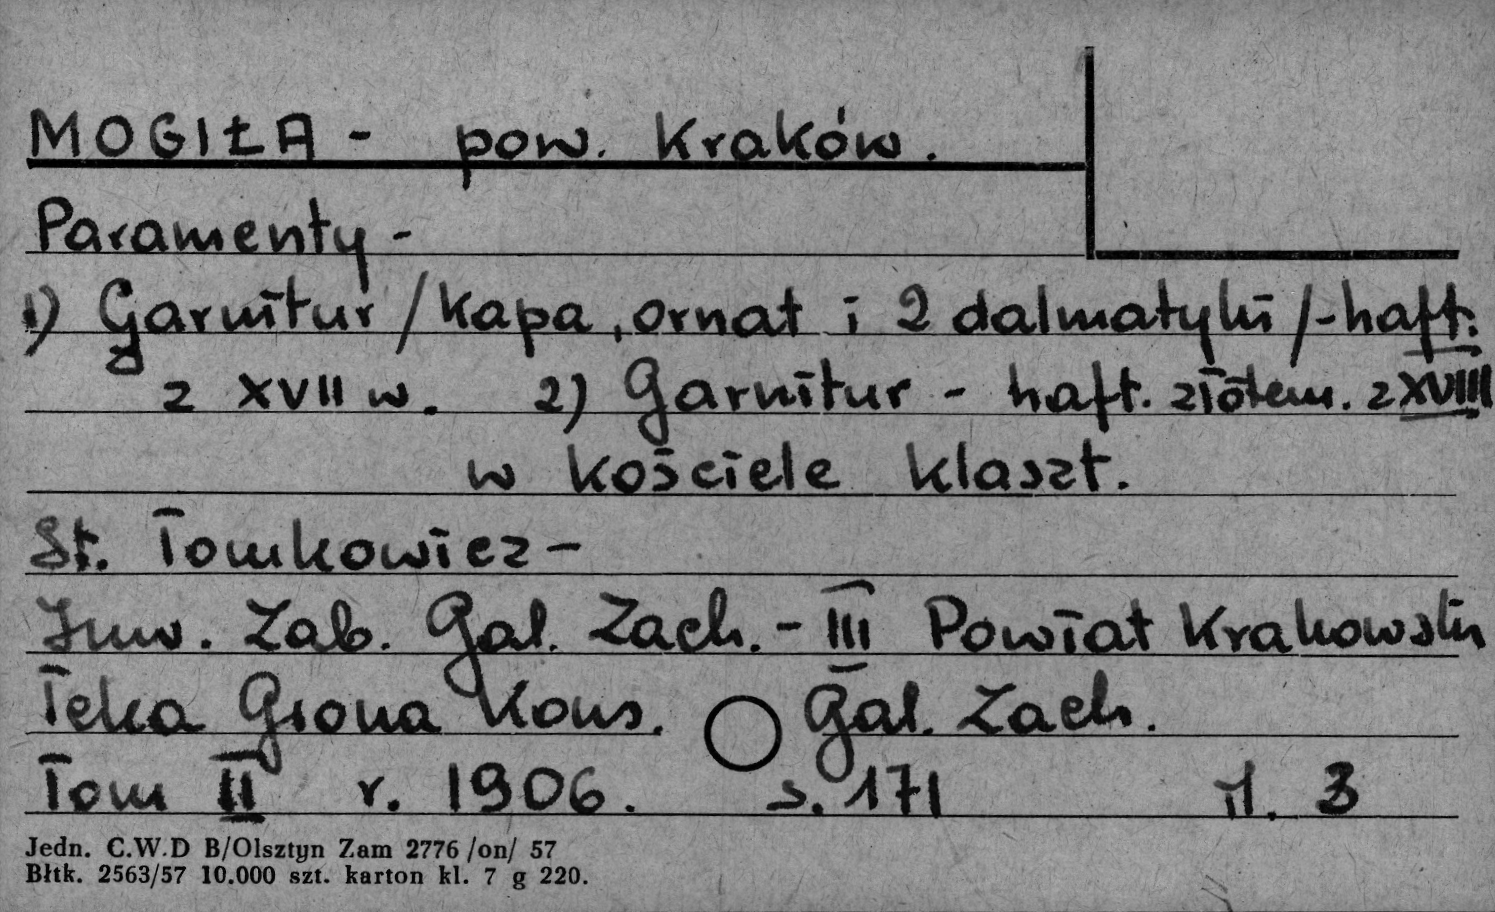 MOGIŁA - pow. Kraków.
Paramenty -
1) Garnitur /kapa, ornat i 2 dalmatyki/ - haft.
z XVII w. 2) Garnitur - haft. złotem. z XVIII
w kościele klaszt.
St. Tomkowicz -
Inw. Zab. Gal. Zach. - III Powiat Krakowski
Teka Grona Kons. Gal. Zach.
Tom II r. 1906. s. 171 il. 3
Jedn. C.W.D B/Olsztyn Zam 2776 /on/ 57
Błtk. 2563/57 10.000 szt. karton kl. 7 g 220.